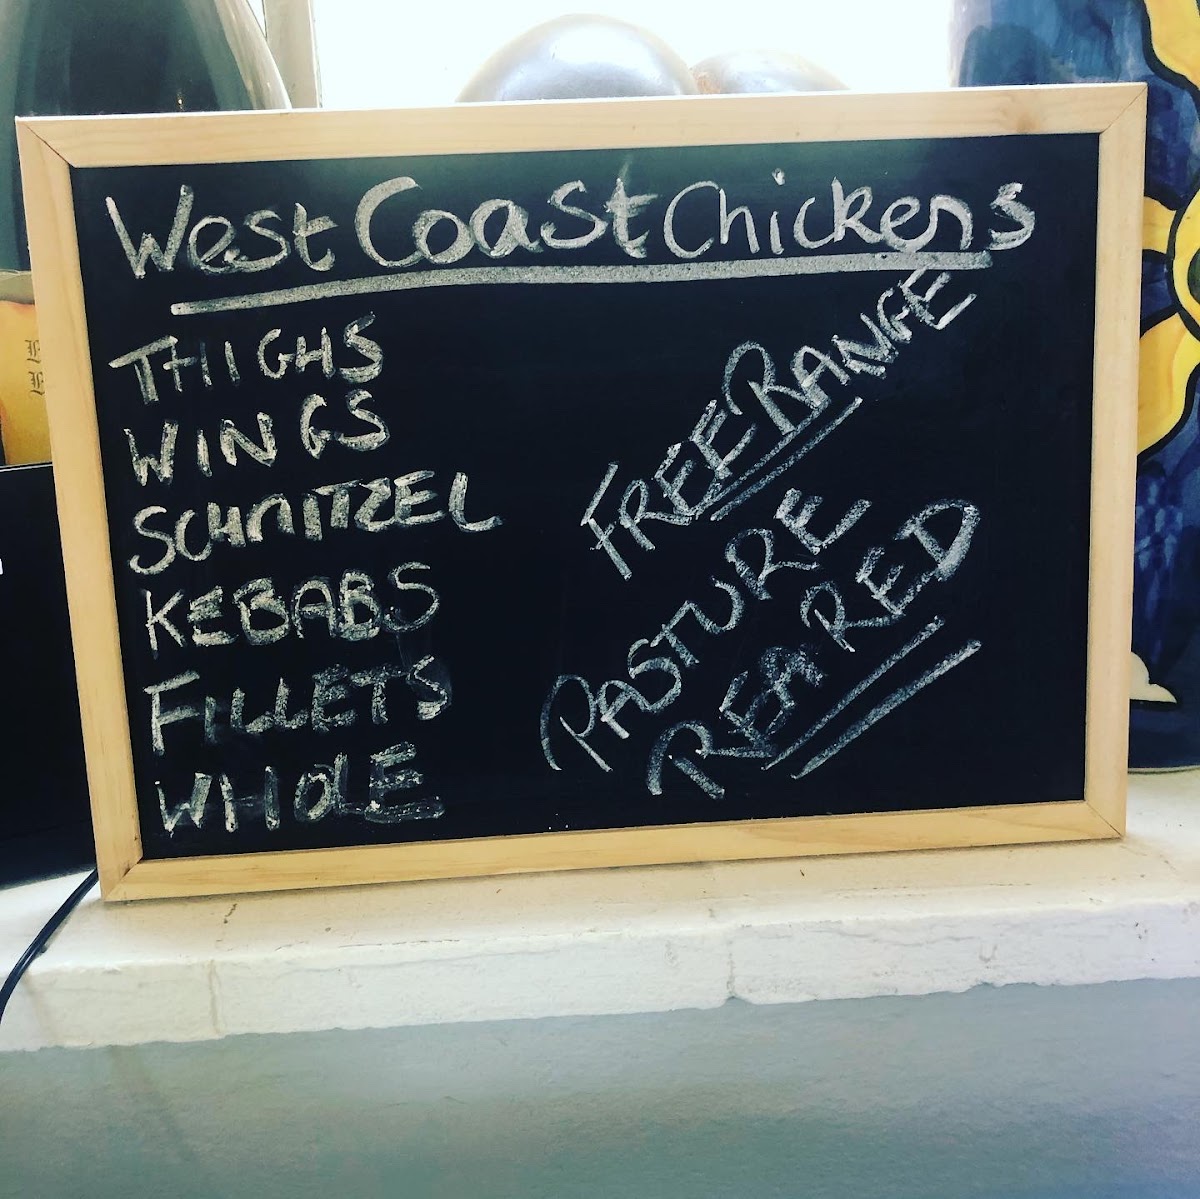 West Coast Chickens
THIGHS
WINGS
SCHNITZEL
KEBABS
FILLETS
WHOLE
FREE RANGE
PASTURE
REARED